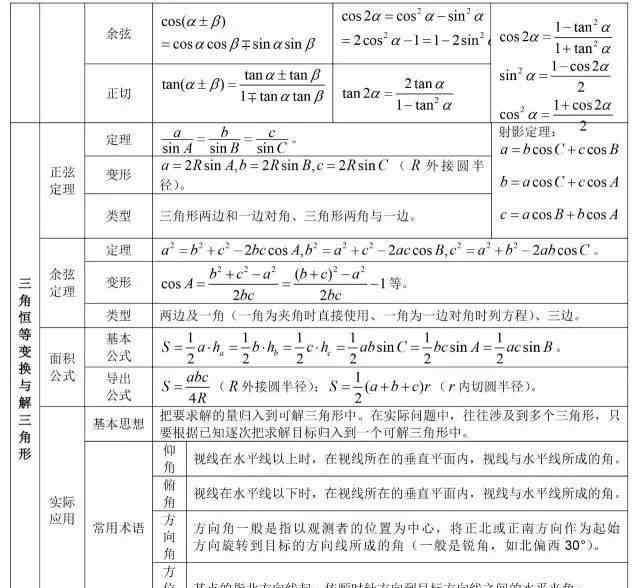 余弦
cos(α±β)
=cosαcosβ∓sinαsinβ
cos2α=cos²α−sin²α
=2cos²α−1=1−2sin²
cos2α=(1−tan²α)/(1+tan²α)
sin²α=(1−cos2α)/2
cos²α=(1+cos2α)/2
正切
tan(α±β)=(tanα±tanβ)/(1∓tanαtanβ)
tan2α=2tanα/(1−tan²α)
三角恒等变换与解三角形
正弦
定理
定理
a/sin A=b/sin B=c/sin C。
射影定理：
a=bcosC+ccosB
b=acosC+ccosA
c=acosB+bcosA
变形
a=2Rsin A,b=2Rsin B,c=2RsinC（R外接圆半
径）。
类型
三角形两边和一边对角、三角形两角与一边。
余弦
定理
定理
a²=b²+c²−2bccosA,b²=a²+c²−2accosB,c²=a²+b²−2abcosC。
变形
cosA=(b²+c²−a²)/2bc=((b+c)²−a²)/2bc−1等。
类型
两边及一角（一角为夹角时直接使用、一角为一边对角时列方程）、三边。
面积
公式
基本
公式
S=1/2a·hₐ=1/2b·h_b=1/2c·h_c=1/2absinC=1/2bcsinA=1/2acsinB。
导出
公式
S=abc/4R（R外接圆半径）；S=1/2(a+b+c)r（r内切圆半径）。
实际
应用
基本思想
把要求解的量归入到可解三角形中。在实际问题中，往往涉及到多个三角形，只
要根据已知逐次把求解目标归入到一个可解三角形中。
常用术语
仰角
视线在水平线以上时，在视线所在的垂直平面内，视线与水平线所成的角。
俯角
视线在水平线以下时，在视线所在的垂直平面内，视线与水平线所成的角。
方向角
方向角一般是指以观测者的位置为中心，将正北或正南方向作为起始
方向旋转到目标的方向线所成的角（一般是锐角，如北偏西30°）。
方